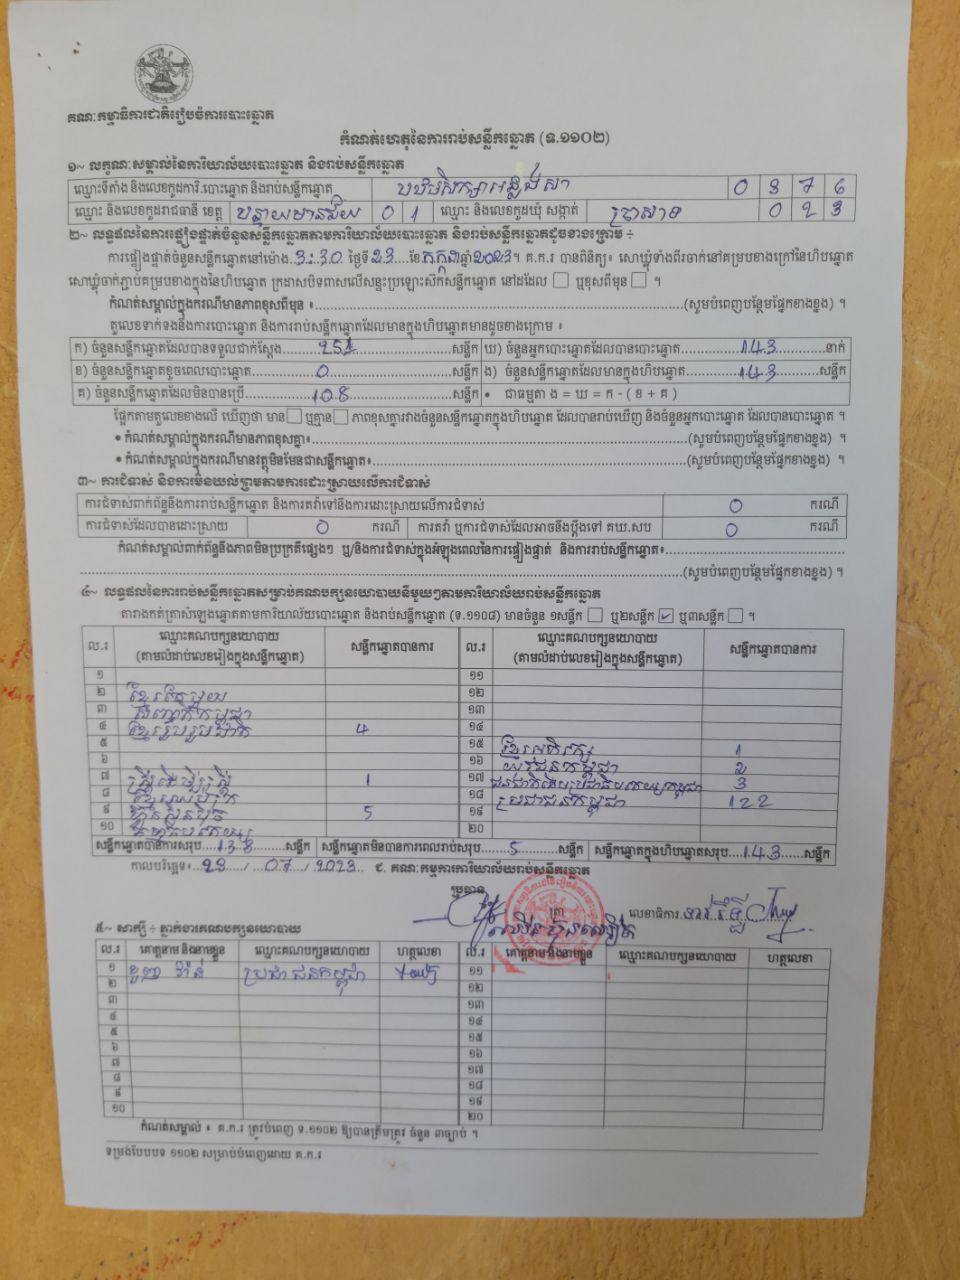 គណៈកម្មាធិការជាតិរៀបចំការបោះឆ្នោត
កំណត់ហេតុនៃការរាប់សន្លឹកឆ្នោត (ទ.១១០២)
១~ លក្ខណៈសម្គាល់នៃការិយាល័យបោះឆ្នោត និងរាប់សន្លឹកឆ្នោត
ឈ្មោះទីតាំង និងលេខកូដការិ.បោះឆ្នោត និងរាប់សន្លឹកឆ្នោត 0 8 7 6
ឈ្មោះ និងលេខកូដរាជធានី ខេត្ត បន្ទាយមានជ័យ 0 1 ឈ្មោះ និងលេខកូដឃុំ សង្កាត់ ប្រាសាទ 0 2 3
២~ លទ្ធផលនៃការផ្ទៀងផ្ទាត់ចំនួនសន្លឹកឆ្នោតតាមការិយាល័យបោះឆ្នោត និងរាប់សន្លឹកឆ្នោតដូចខាងក្រោម ÷
ការផ្ទៀងផ្ទាត់ចំនួនសន្លឹកឆ្នោតនៅម៉ោង..3:30..ថ្ងៃទី..23..ខែកក្កដាឆ្នាំ2023។ គ.ក.រ បានពិនិត្យ៖ សោឃ្មុំទាំងពីរចាក់នៅគម្របខាងក្រៅនៃហិបឆ្នោត
សោឃ្មុំចាក់ភ្ជាប់គម្របខាងក្នុងនៃហិបឆ្នោត ក្រដាសបិទពាសលើសន្ទះប្រឡោះស៊កសន្លឹកឆ្នោត នៅដដែល ឬខុសពីមុន ។
កំណត់សម្គាល់ក្នុងករណីមានភាពខុសពីមុន ៖ (សូមបំពេញបន្ថែមផ្នែកខាងខ្នង) ។
តួលេខទាក់ទងនឹងការបោះឆ្នោត និងការរាប់សន្លឹកឆ្នោតដែលមានក្នុងហិបឆ្នោតមានដូចខាងក្រោម ៖
ក) ចំនួនសន្លឹកឆ្នោតដែលបានទទួលជាក់ស្តែង 251 សន្លឹក ឃ) ចំនួនអ្នកបោះឆ្នោតដែលបានបោះឆ្នោត 143 នាក់
ខ) ចំនួនសន្លឹកឆ្នោតខូចពេលបោះឆ្នោត 0 សន្លឹក ង) ចំនួនសន្លឹកឆ្នោតដែលមានក្នុងហិបឆ្នោត 143 សន្លឹក
គ) ចំនួនសន្លឹកឆ្នោតដែលមិនបានប្រើ 108 សន្លឹក • ជាធម្មតា ង = ឃ = ក - ( ខ + គ )
ផ្អែកតាមតួលេខខាងលើ ឃើញថា មាន ឬគ្មាន ភាពខុសគ្នារវាងចំនួនសន្លឹកឆ្នោតក្នុងហិបឆ្នោត ដែលបានរាប់ឃើញ និងចំនួនអ្នកបោះឆ្នោត ដែលបានបោះឆ្នោត ។
• កំណត់សម្គាល់ក្នុងករណីមានភាពខុសគ្នា៖ (សូមបំពេញបន្ថែមផ្នែកខាងខ្នង) ។
• កំណត់សម្គាល់ក្នុងករណីមានវត្ថុមិនមែនជាសន្លឹកឆ្នោត៖ (សូមបំពេញបន្ថែមផ្នែកខាងខ្នង) ។
៣~ ការជំទាស់ និងការមិនយល់ព្រមតាមការដោះស្រាយលើការជំទាស់
ការជំទាស់ពាក់ព័ន្ធនឹងការរាប់សន្លឹកឆ្នោត និងការតវ៉ាទៅនឹងការដោះស្រាយលើការជំទាស់ 0 ករណី
ការជំទាស់ដែលបានដោះស្រាយ 0 ករណី ការតវ៉ា ឬការជំទាស់ដែលអាចនឹងប្តឹងទៅ គឃ.សប 0 ករណី
កំណត់សម្គាល់ពាក់ព័ន្ធនឹងភាពមិនប្រក្រតីផ្សេងៗ ឬ/និងការជំទាស់ក្នុងអំឡុងពេលនៃការផ្ទៀងផ្ទាត់ និងការរាប់សន្លឹកឆ្នោត៖
(សូមបំពេញបន្ថែមផ្នែកខាងខ្នង) ។
៤~ លទ្ធផលនៃការរាប់សន្លឹកឆ្នោតសម្រាប់គណបក្សនយោបាយនីមួយៗតាមការិយាល័យរាប់សន្លឹកឆ្នោត
តារាងកត់ត្រាសំឡេងឆ្នោតតាមការិយាល័យបោះឆ្នោត និងរាប់សន្លឹកឆ្នោត (ទ.១១០៨) មានចំនួន ១សន្លឹក ឬ២សន្លឹក ✓ ឬ៣សន្លឹក ។
ល.រ ឈ្មោះគណបក្សនយោបាយ (តាមលំដាប់លេខរៀងក្នុងសន្លឹកឆ្នោត) សន្លឹកឆ្នោតបានការ ល.រ ឈ្មោះគណបក្សនយោបាយ (តាមលំដាប់លេខរៀងក្នុងសន្លឹកឆ្នោត) សន្លឹកឆ្នោតបានការ
១ ១១
២ ខ្មែរតែមួយ ១២
៣ ១៣
៤ ខ្មែររួបរួមជាតិ 4 ១៤
៥ ១៥ ខ្មែរអភិរក្ស 1
៦ ១៦ យុវជនកម្ពុជា 2
៧ ស្ត្រីដើម្បីស្ត្រី 1 ១៧ 3
៨ ១៨ ប្រជាជនកម្ពុជា 122
៩ ហ្វ៊ុនស៊ិនប៉ិច 5 ១៩
១០ ២០
សន្លឹកឆ្នោតបានការសរុប..138..សន្លឹក សន្លឹកឆ្នោតមិនបានការពេលរាប់សរុប..5..សន្លឹក សន្លឹកឆ្នោតក្នុងហិបឆ្នោតសរុប..143..សន្លឹក
កាលបរិច្ឆេទ៖..23../..07../..2023.. ៩. គណៈកម្មការការិយាល័យរាប់សន្លឹកឆ្នោត
ប្រធាន
ត្រា លេខាធិការ
៥~ សាក្សី ÷ ភ្នាក់ងារគណបក្សនយោបាយ
ល.រ គោត្តនាម និងនាមខ្លួន ឈ្មោះគណបក្សនយោបាយ ហត្ថលេខា ល.រ គោត្តនាម និងនាមខ្លួន ឈ្មោះគណបក្សនយោបាយ ហត្ថលេខា
១ ប្រជាជនកម្ពុជា ១១
២ ១២
៣ ១៣
៤ ១៤
៥ ១៥
៦ ១៦
៧ ១៧
៨ ១៨
៩ ១៩
១០ ២០
កំណត់សម្គាល់ ៖ គ.ក.រ ត្រូវបំពេញ ទ.១១០២ ឱ្យបានត្រឹមត្រូវ ចំនួន ៣ច្បាប់ ។
ទម្រង់បែបបទ ១១០២ សម្រាប់បំពេញដោយ គ.ក.រ